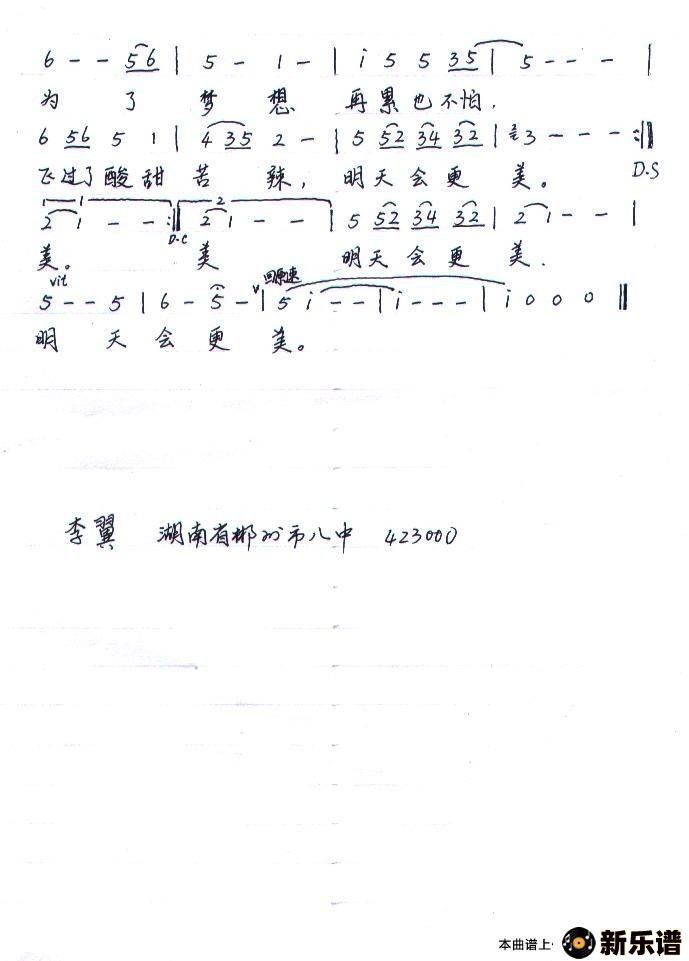 6 - - 56 | 5 - 1 - | i 5 5 35 | 5 - - - |
为了梦想 再累也不怕，
6 56 5 1 | 4 35 2 - | 5 52 34 32 | 2 3 - - - :||
飞过了酸甜苦辣，明天会更美。 D.S
1 2
2 1 - - :|| 2 1 - - | 5 52 34 32 | 2 1 - - |
D.C
美。 美 明天会更美.
vit 回原速
5 - - 5 | 6 - 5 - | 5 i - - | i - - - | i 0 0 0 ||
明天会更美。
李翼 湖南省郴州市八中 423000
本曲谱上· 新乐谱